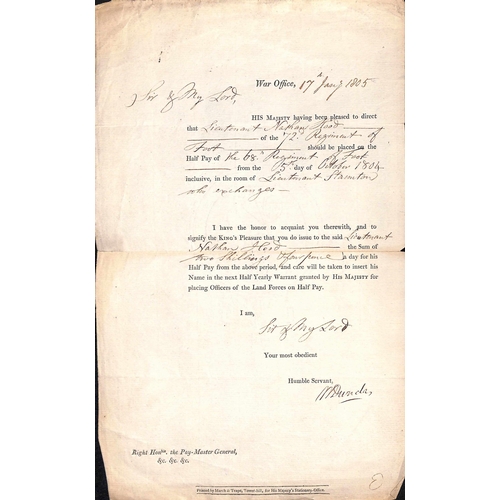 War Office, 17th Jany 1805
Sir & My Lord,
HIS MAJESTY having been pleased to direct
that Lieutenant Nathan Hood
of the 72d Regiment of
Foot should be placed on the
Half Pay of the 68th Regiment of Foot
from the 5th day of October 1804
inclusive, in the room of Lieutenant
who exchanges
I have the honor to acquaint you therewith, and to
signify the KING's Pleasure that you do issue to the said Lieutenant
Nathan Hood the Sum of
two Shillings & fourpence a day for his
Half Pay from the above period, and care will be taken to insert his
Name in the next Half Yearly Warrant granted by HIS MAJESTY for
placing Officers of the Land Forces on Half Pay.
I am,
Sir & My Lord
Your most obedient
Humble Servant,
Dundas
Right Honble. the Pay-Master General,
&c. &c. &c.
Printed by March & Teape, Tower-hill, for His Majesty's Stationery-Office.